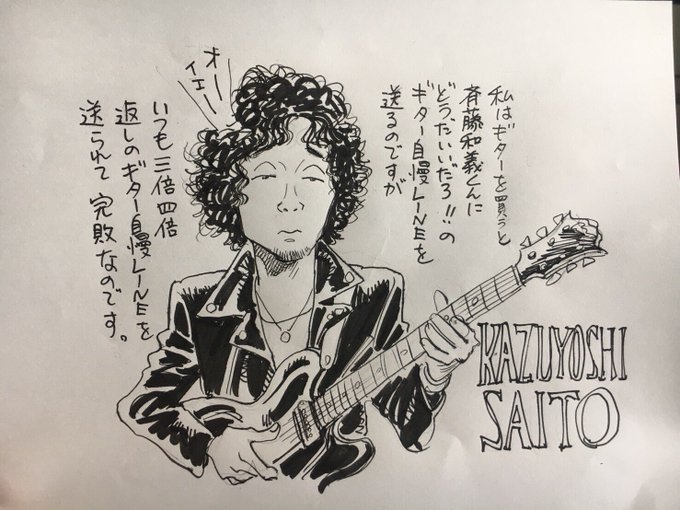 私はギターを買うと
斉藤和義くんに
どう、だいいだろ!!の
ギター自慢LINEを
送るのですが
オー
イェー
いつも三倍四倍
返しのギター自慢LINEを
送られて完敗なのです。
KAZUYOSHI
SAITO